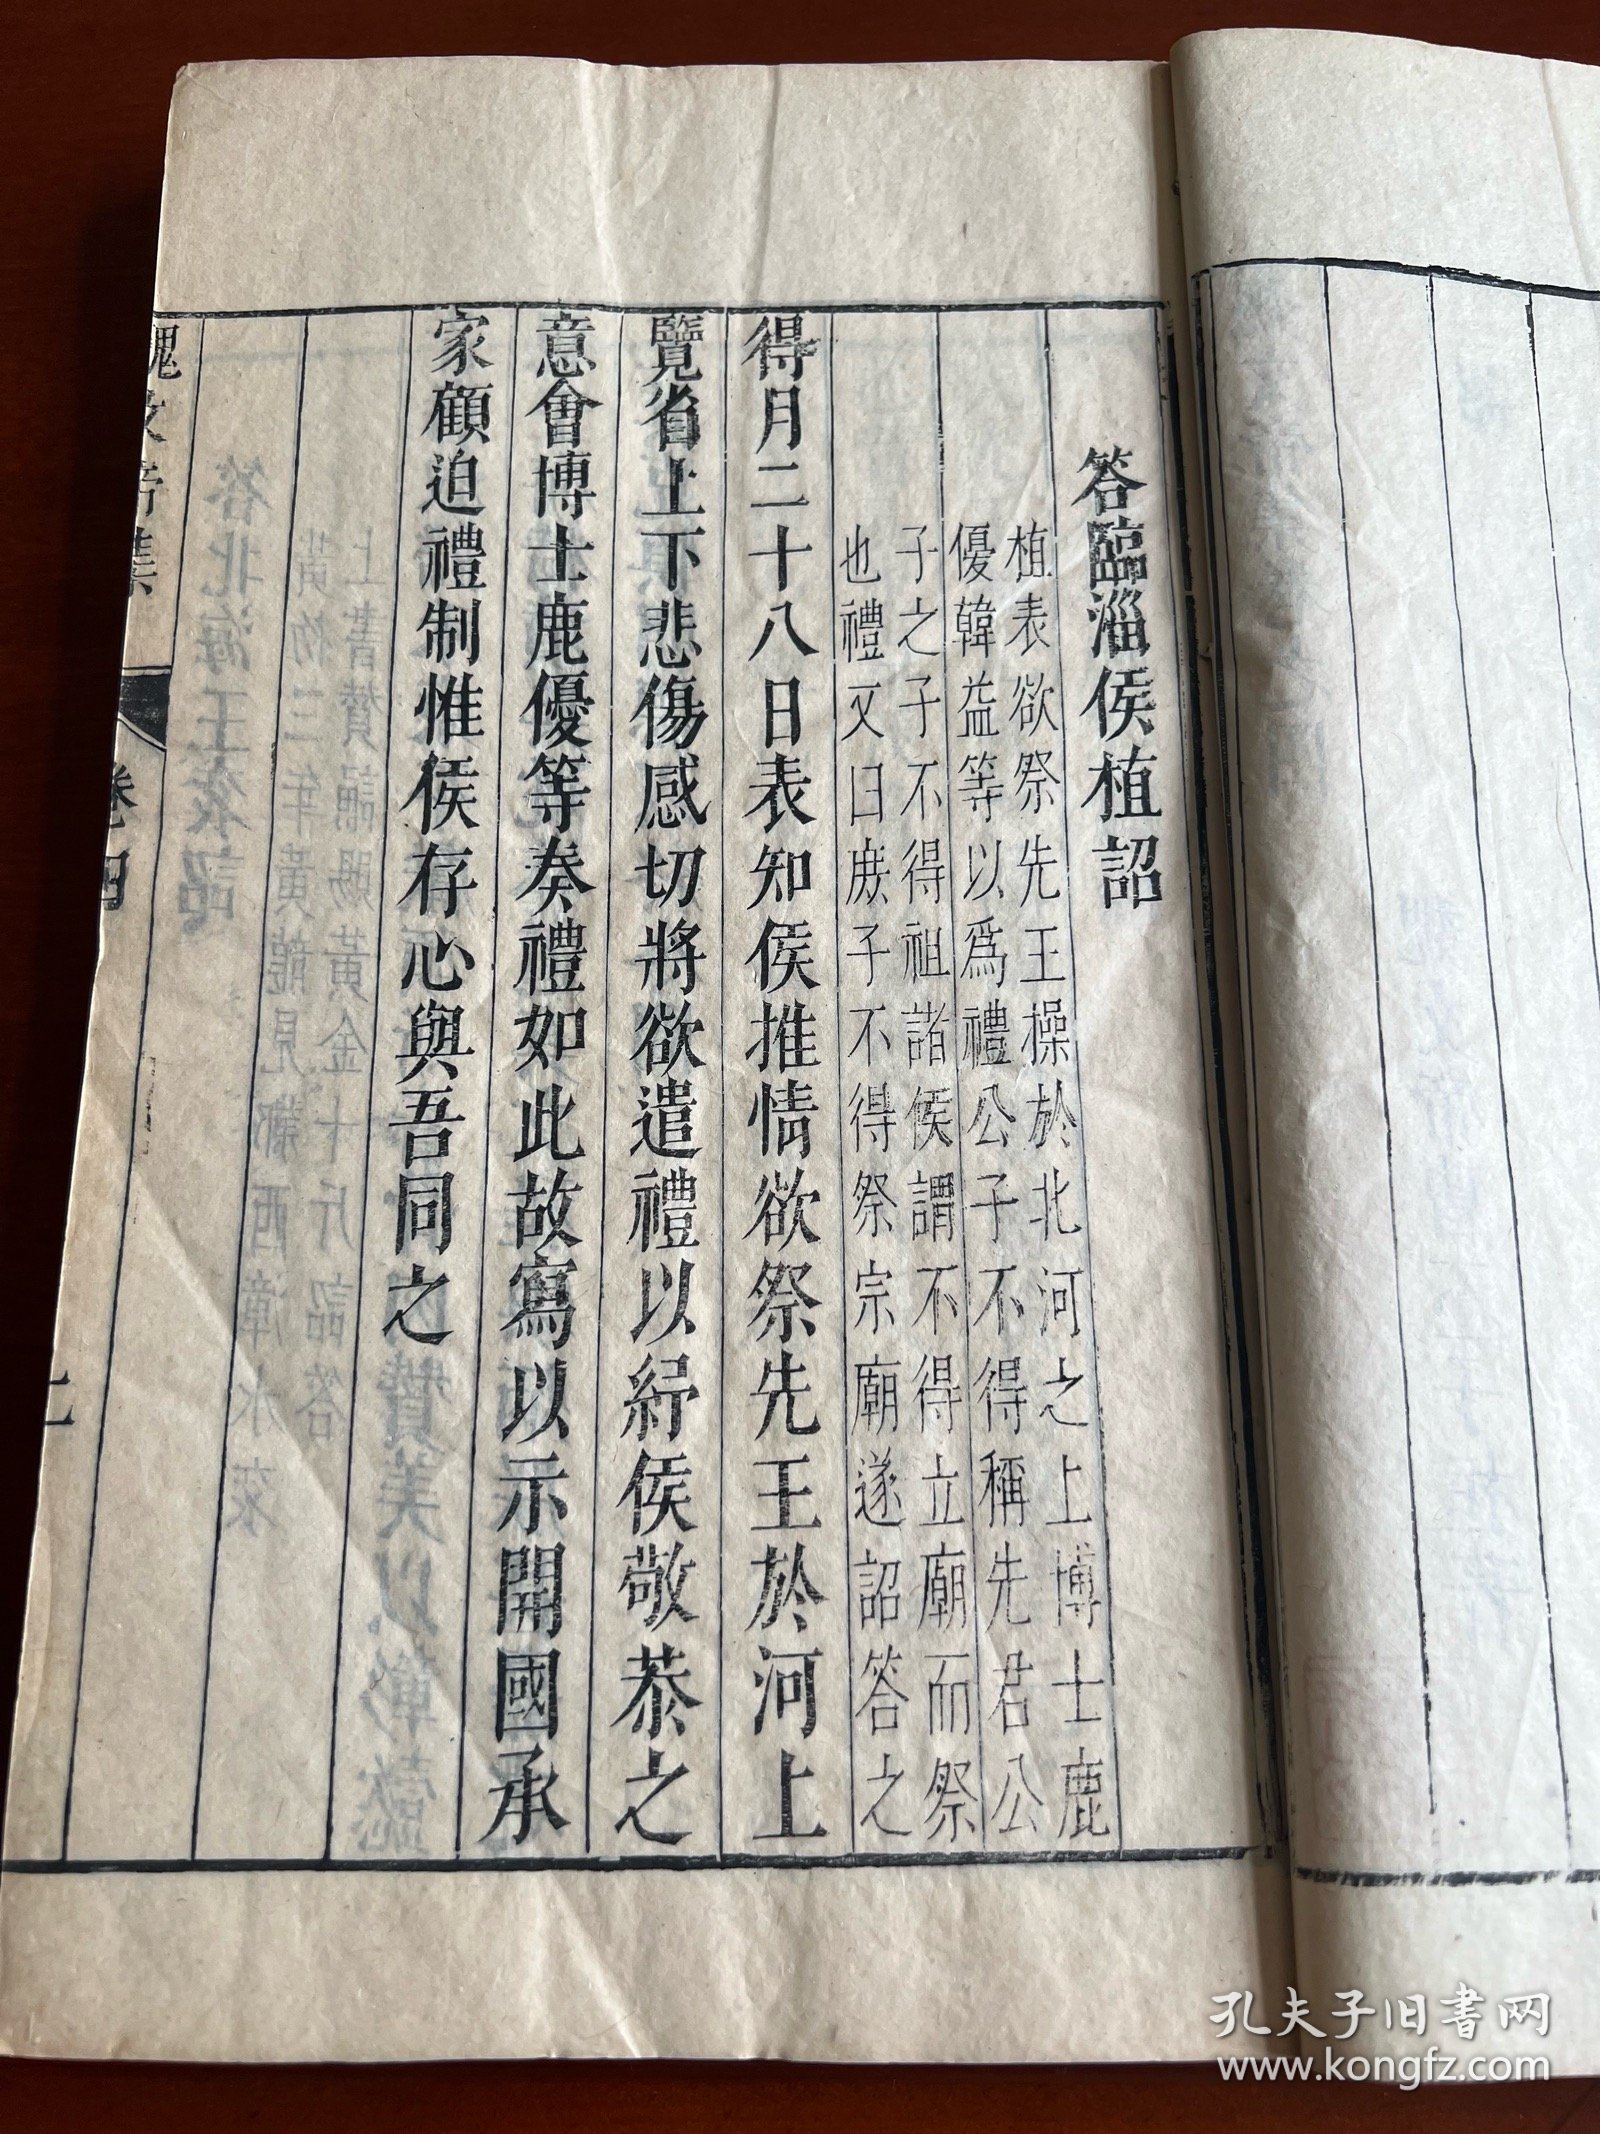 答臨淄侯植詔
植表欲祭先王操於北河之上博士鹿
優韓益等以爲禮公子不得稱先君公
子之子不得祖諸侯謂不得立廟而祭
也禮又曰庶子不得祭宗廟遂詔答之
得月二十八日表知侯推情欲祭先王於河上
覽省上下悲傷感切將欲遣禮以紓侯敬恭之
意會博士鹿優等奏禮如此故寫以示開國承
家顧迫禮制惟侯存心與吾同之
卷四
孔夫子旧书网
www.kongfz.com